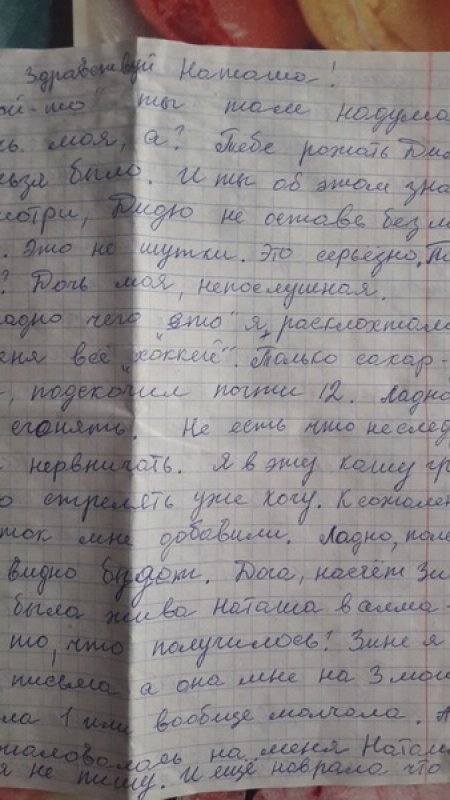 Здравствуй Наташа!
ой-то" ты там надума
ь моя, а? Тебе рожать Дид
льзя было. И ты об этом зна
мотри, Дидю не оставь без м
. Это не шутки. Это серьезно. Т
? Дочь моя, непослушная.
адно чего "это" я, расклохтала
еня всё "хоккей". Только сахар-
, подскочил почти 12. Ладно
сгонять. Не есть что не след
нервничать. Я в эту кашу гр
о стрелять уже хочу. К сожален
ток мне добавили. Ладно, пол
видно будет. Дога, насчёт Зи
была жива Наташа в алма-
то, что получилось! Зине я
письма а она мне на 3 мои
ла 1 или вообще молчала. А
жаловалась на меня Наташ
я не пишу. И ещё наврала что